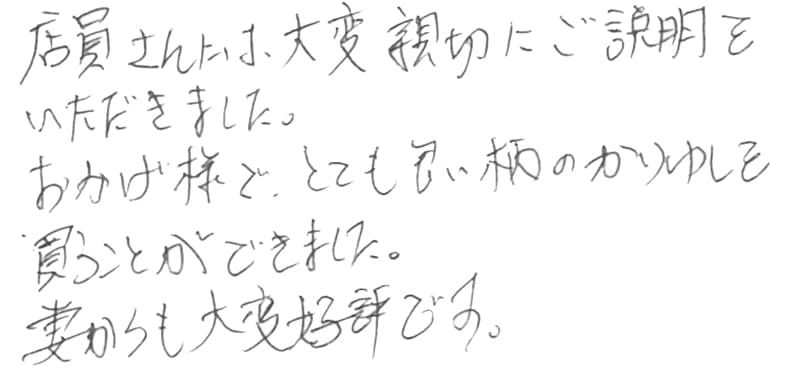 店員さんには、大変親切にご説明を
いただきました。
おかげ様で、とても良い柄のかりゆしを
買うことができました。
妻からも大変好評です。